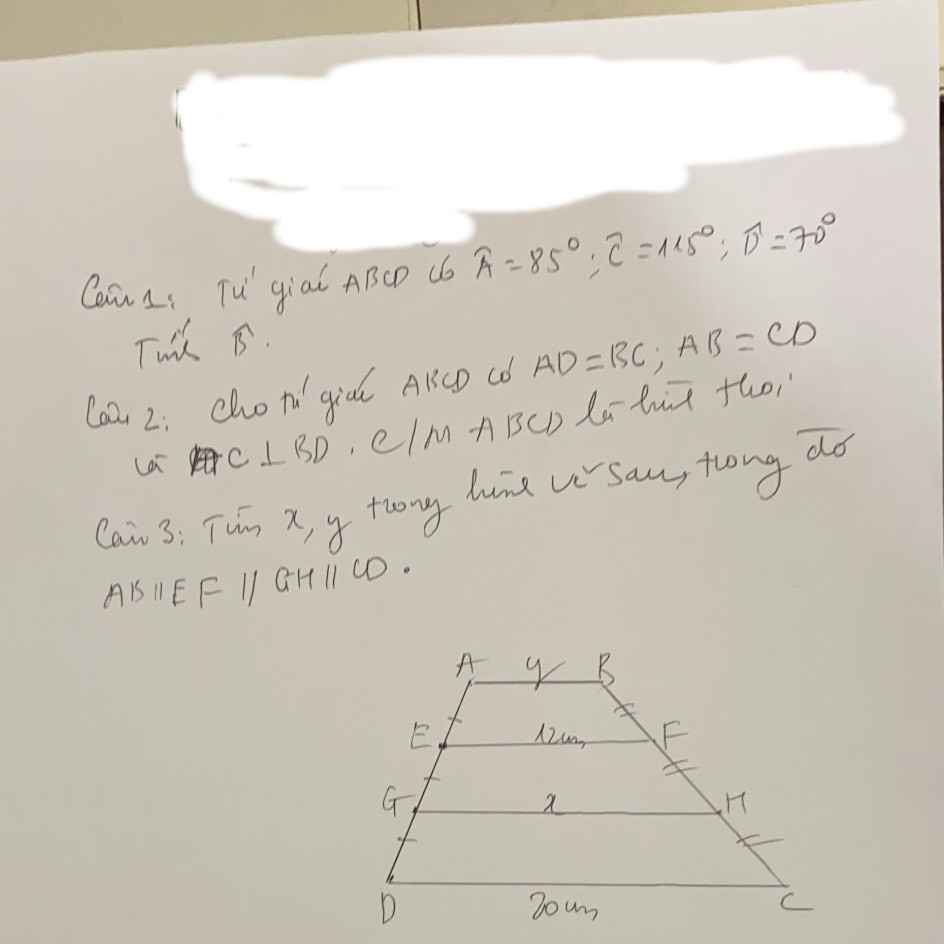 Câu 1: Tứ giác ABCD có Â = 85°; Ĉ = 115°; D̂ = 70°
Tính B̂.
Câu 2: Cho tứ giác ABCD có AD = BC; AB = CD
và AC ⊥ BD. C/M ABCD là hình thoi
Câu 3: Tìm x, y trong hình vẽ sau, trong đó
AB // EF // GH // CD.
A y B
E 12cm F
G x H
D 20cm C